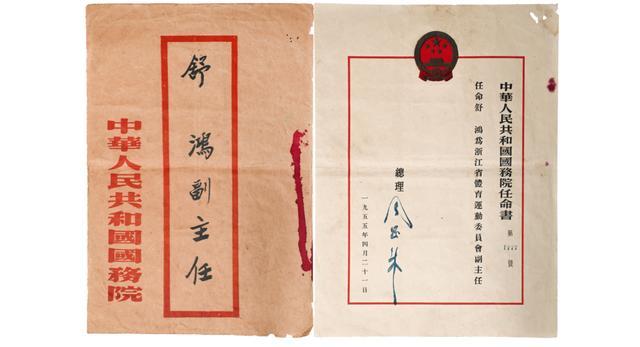 舒 鴻副主任
中華人民共和國國務院
中華人民共和國國務院任命書
第 號
任命舒 鴻為浙江省體育運動委員會副主任
總理
周恩来
一九五五年四月二十一日